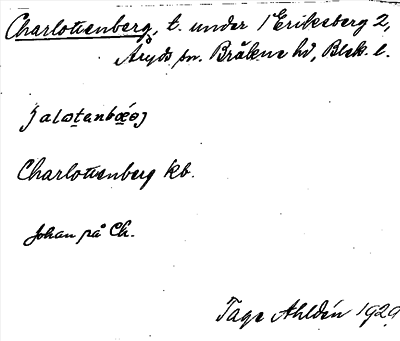 Charlottenberg, t. under 1 Eriksberg 2,
Åryds sn. Bräkne hd, Blek. l.
Charlottenberg kb.
Johan på Ch.
Tage Ahldén 1929